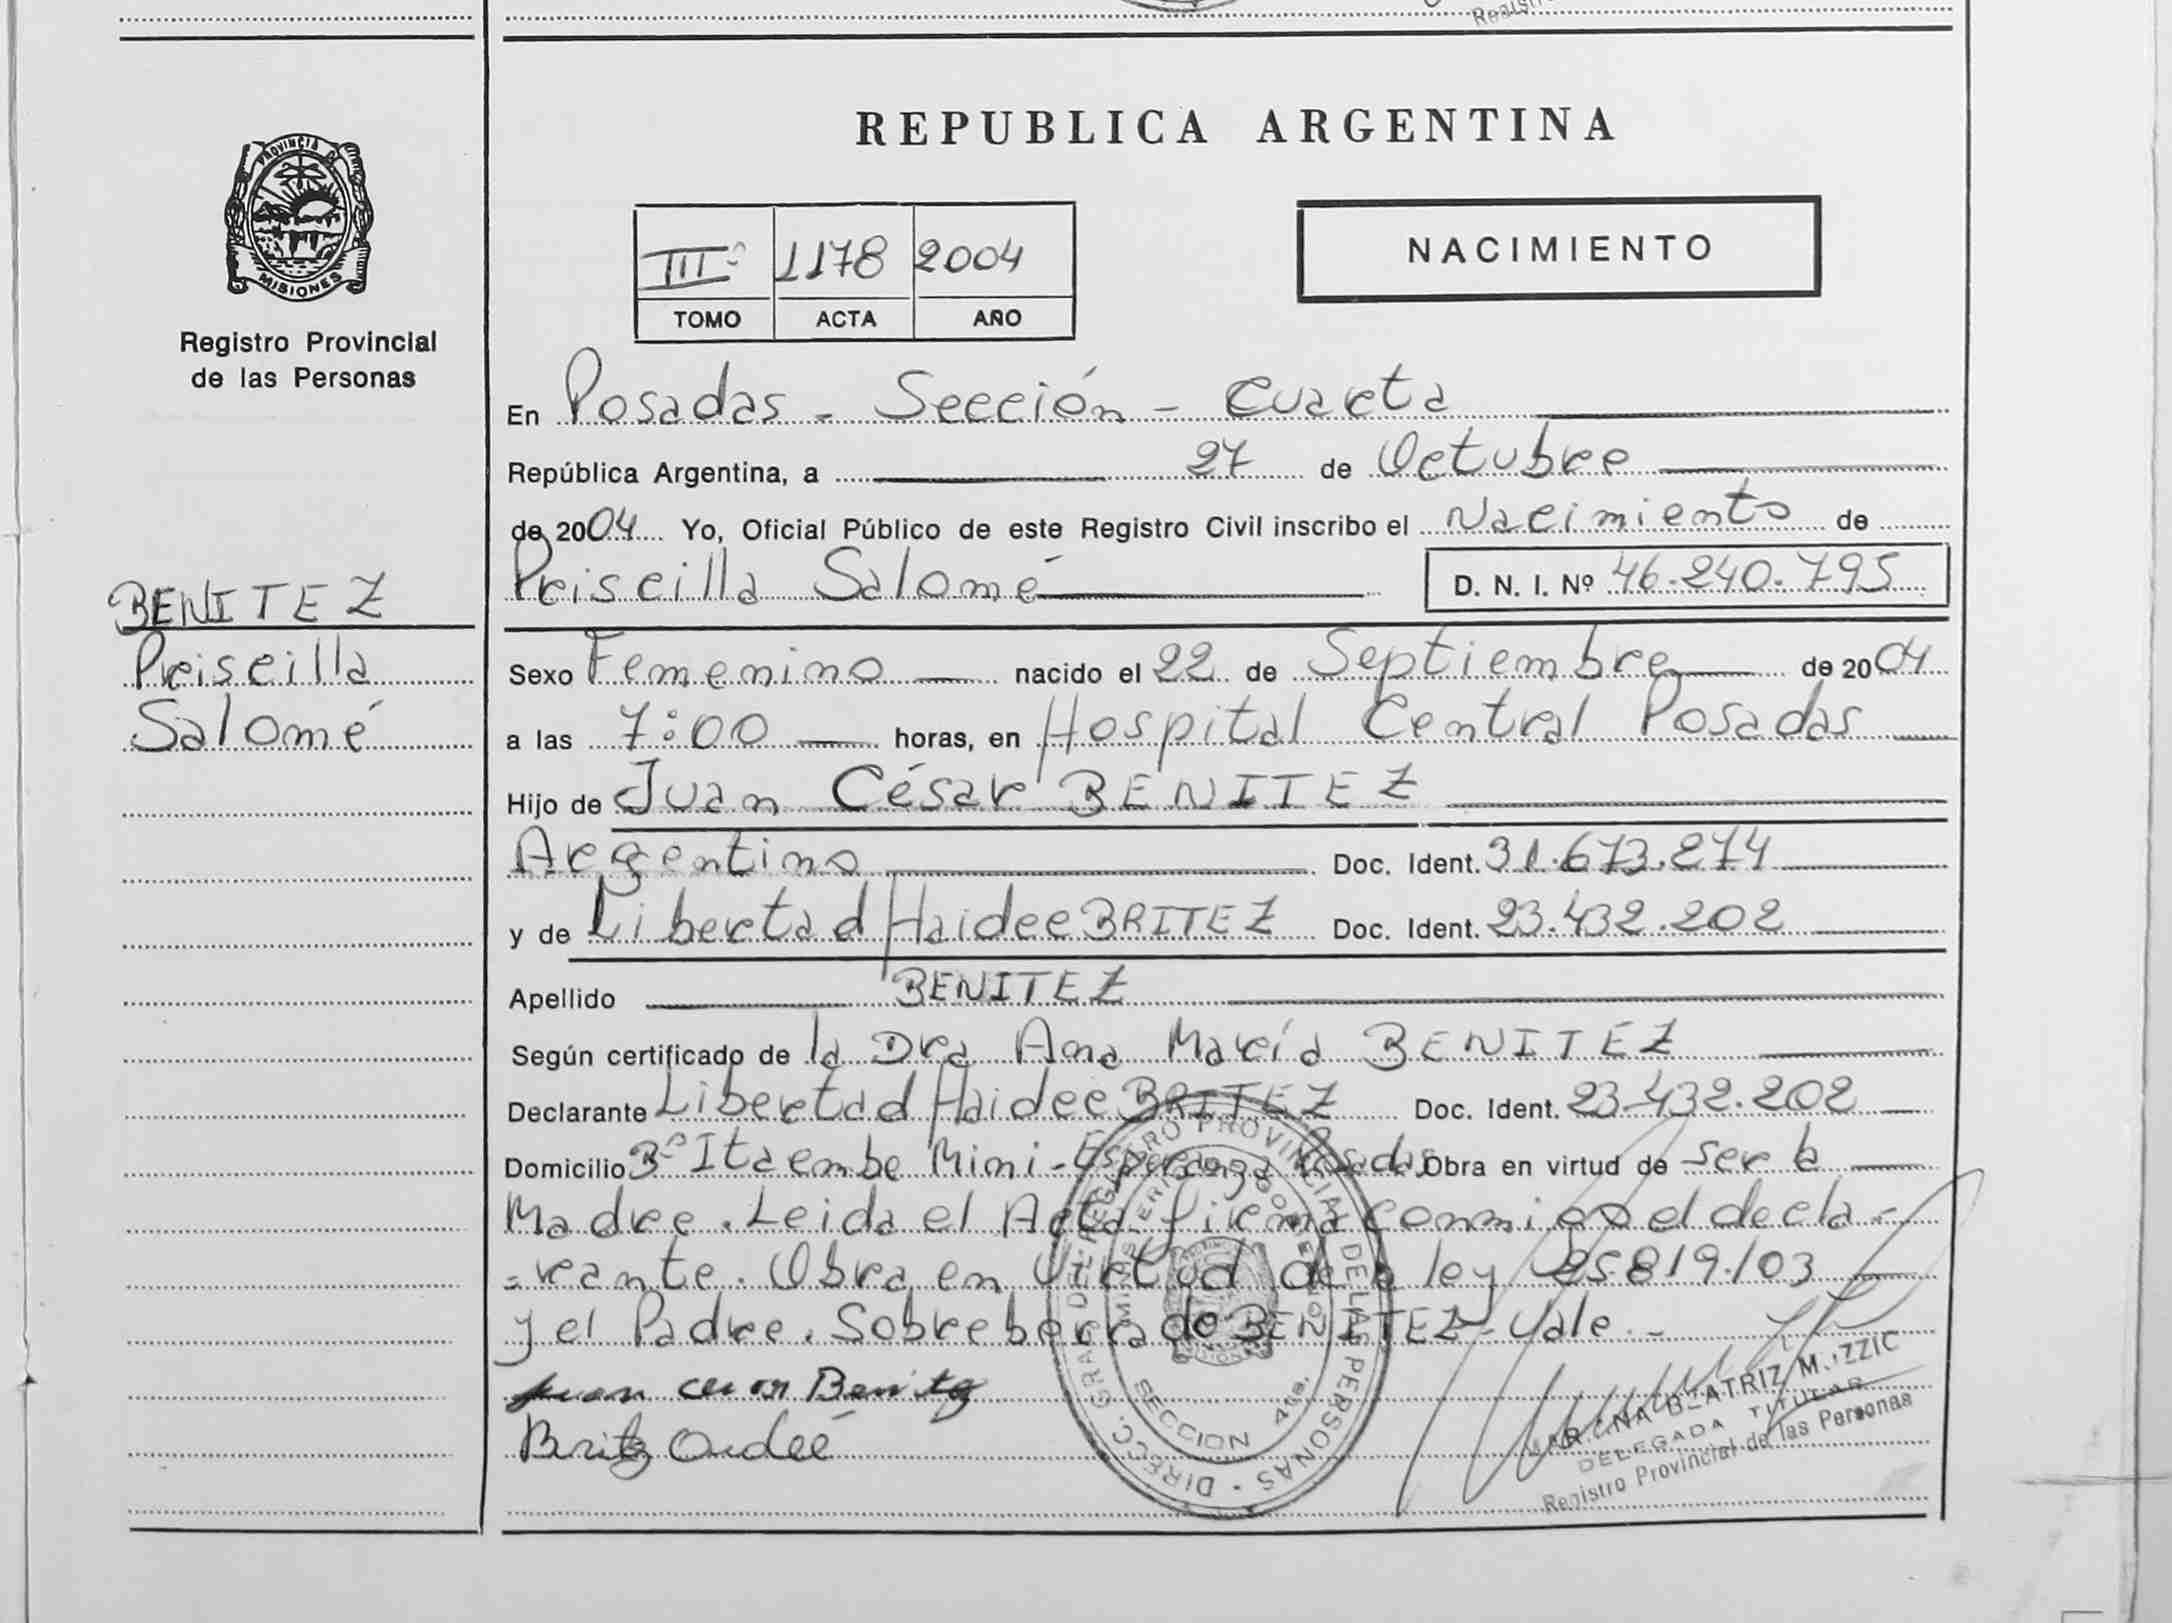 Registro
PROVINCIA DE
MISIONES
Registro Provincial
de las Personas
BENITEZ
Priscilla
Salomé
REPUBLICA ARGENTINA
III° 1178 2004
TOMO ACTA AÑO
NACIMIENTO
En Posadas - Sección - Cuarta
República Argentina, a 27 de Octubre
de 2004 Yo, Oficial Público de este Registro Civil inscribo el Nacimiento de
Priscilla Salomé D. N. I. Nº 46.240.795
Sexo Femenino nacido el 22 de Septiembre de 2004
a las 7:00 horas, en Hospital Central Posadas
Hijo de Juan César BENITEZ
Argentino Doc. Ident. 31.673.274
y de Libertad Haidee BRITEZ Doc. Ident. 23.432.202
Apellido BENITEZ
Según certificado de la Dra Ana María BENITEZ
Declarante Libertad Haidee BRITEZ Doc. Ident. 23.432.202
Domicilio B° Itaembe Mini - Esperanza Posadas Obra en virtud de ser la
Madre. Leida el Acta firma conmigo el decla-
-rante. Obra en Virtud de la ley 25.819/03
y el Padre. Sobreborrado BENITEZ - Vale.-
Juan cesar Benitez
Britez
DIRECC. GRAL. DEL REGISTRO PROVINCIAL DE LAS PERSONAS
SECCION 4ta.
BEATRIZ
DELEGADA TITULAR
Registro Provincial de las Personas